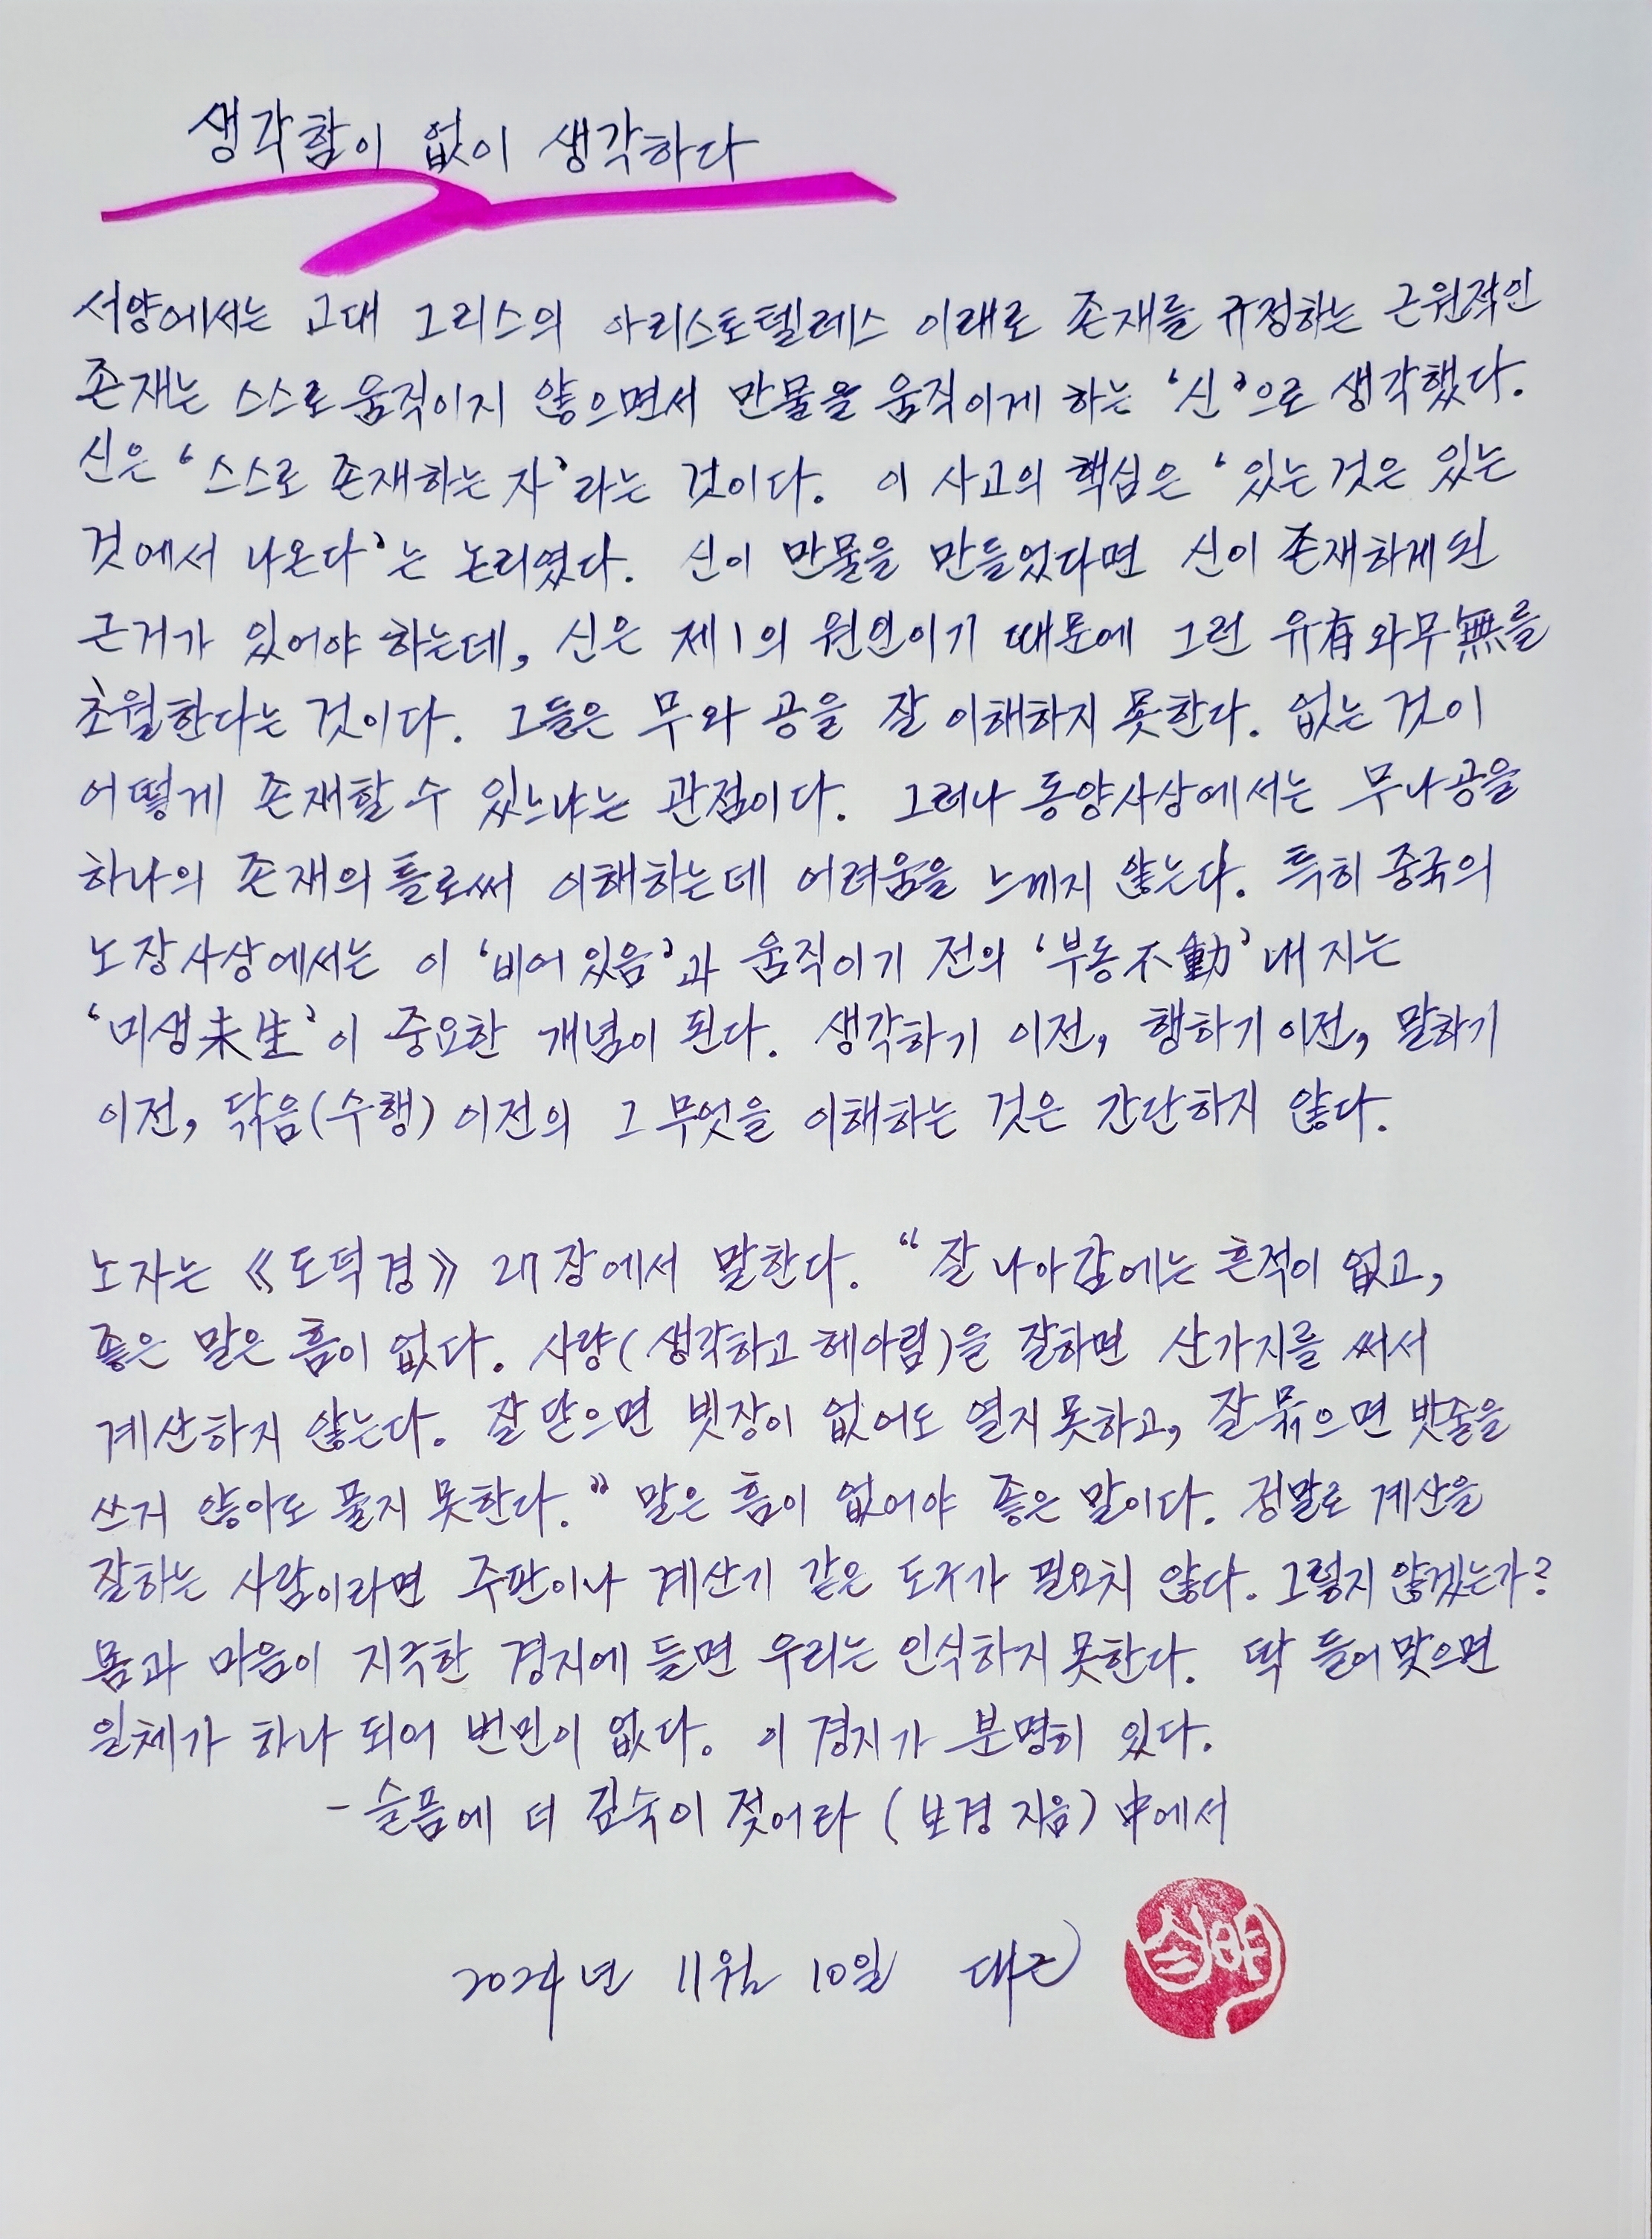 생각함이 없이 생각하다
서양에서는 고대 그리스의 아리스토텔레스 이래로 존재를 규정하는 근원적인
존재는 스스로 움직이지 않으면서 만물을 움직이게 하는 ‘신’으로 생각했다.
신은 ‘스스로 존재하는 자’라는 것이다. 이 사고의 핵심은 ‘있는 것은 있는
것에서 나온다’는 논리였다. 신이 만물을 만들었다면 신이 존재하게 된
근거가 있어야 하는데, 신은 제1의 원인이기 때문에 그런 유有와 무無를
초월한다는 것이다. 그들은 무와 공을 잘 이해하지 못한다. 없는 것이
어떻게 존재할 수 있느냐는 관점이다. 그러나 동양사상에서는 무나 공을
하나의 존재의 틀로써 이해하는데 어려움을 느끼지 않는다. 특히 중국의
노장사상에서는 이 ‘비어 있음’과 움직이기 전의 ‘부동不動’ 내지는
‘미생未生’이 중요한 개념이 된다. 생각하기 이전, 행하기 이전, 말하기
이전, 닦음(수행) 이전의 그 무엇을 이해하는 것은 간단하지 않다.
노자는 《도덕경》 27장에서 말한다. “잘 나아감에는 흔적이 없고,
좋은 말은 흠이 없다. 사량(생각하고 헤아림)을 잘하면 산가지를 써서
계산하지 않는다. 잘 닫으면 빗장이 없어도 열지 못하고, 잘 묶으면 밧줄을
쓰지 않아도 풀지 못한다.” 말은 흠이 없어야 좋은 말이다. 정말로 계산을
잘하는 사람이라면 주판이나 계산기 같은 도구가 필요치 않다. 그렇지 않겠는가?
몸과 마음이 지극한 경지에 들면 우리는 인식하지 못한다. 딱 들어맞으면
일체가 하나 되어 번민이 없다. 이 경지가 분명히 있다.
- 슬픔에 더 깊숙이 젖어라 (보경 지음) 中에서
2024년 11월 10일 대근